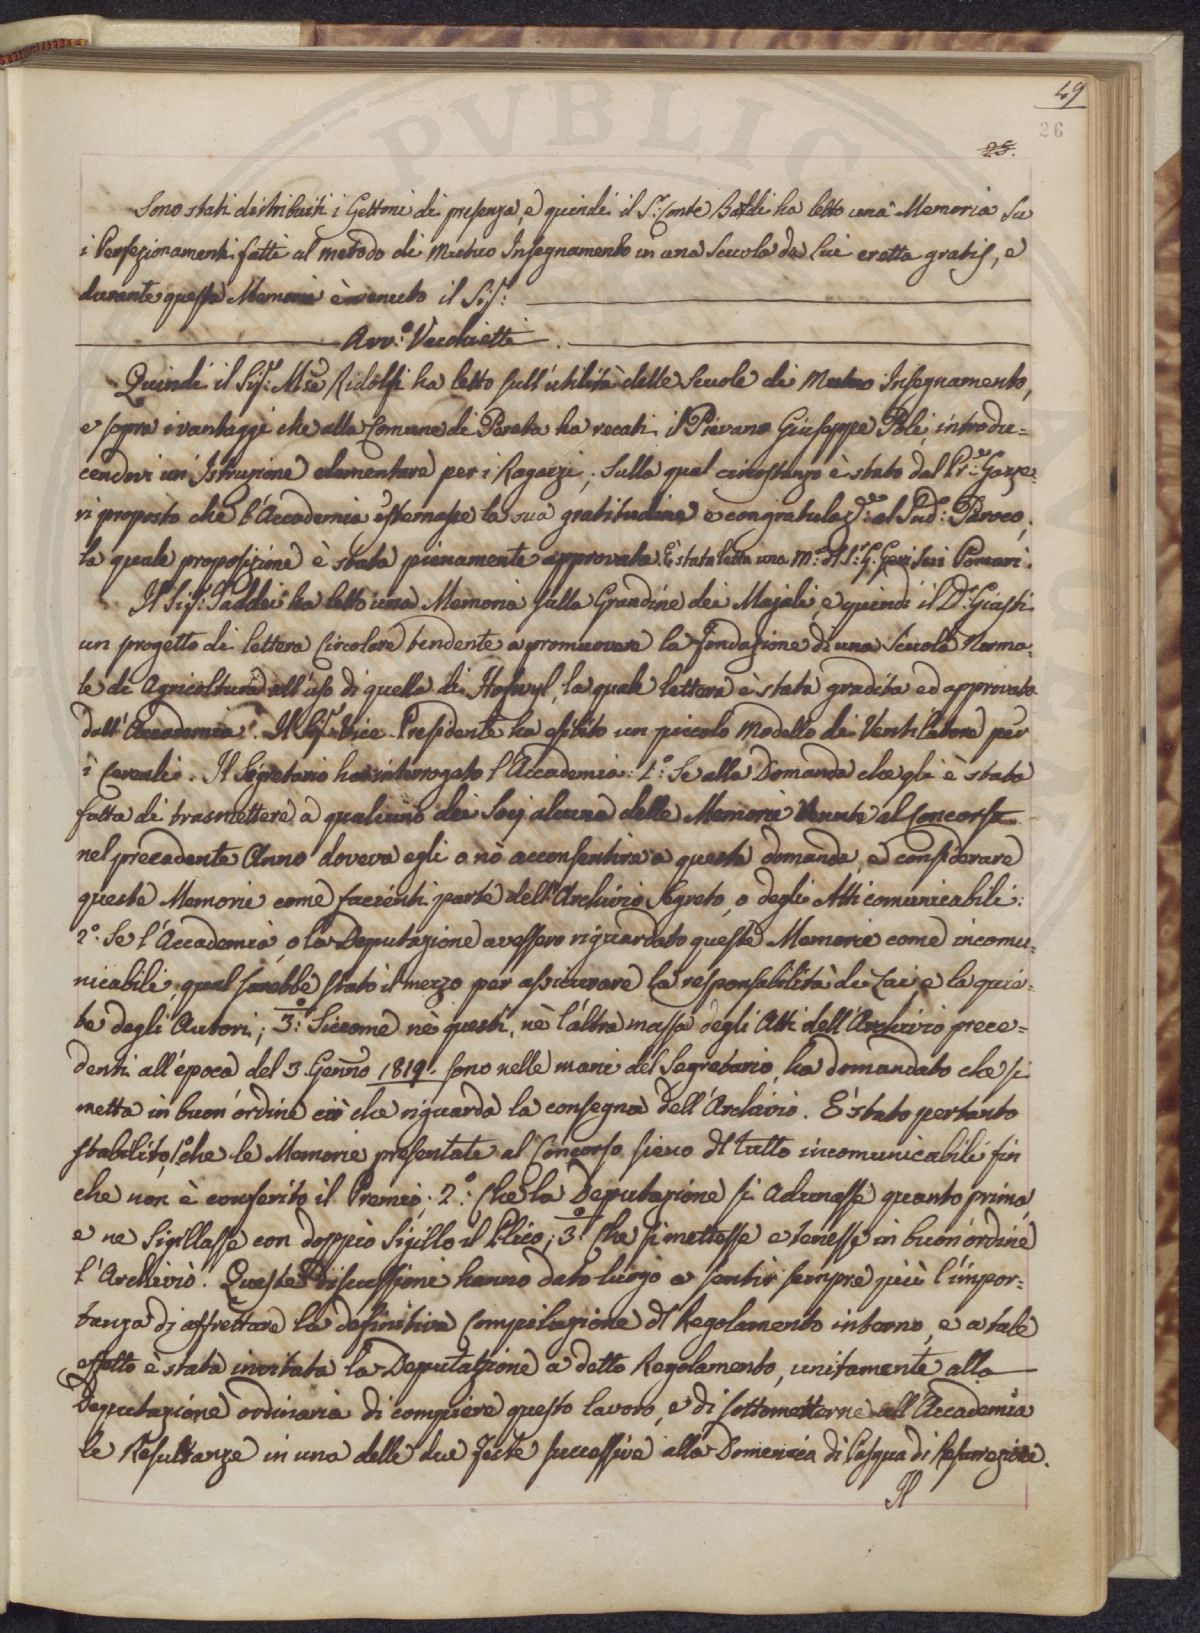 49
26
25.
Sono stati distribuiti i Gettoni di presenza, e quindi il S.r Conte Baldi ha letto una Memoria su
i Perfezionamenti fatti al metodo di Mutuo Insegnamento in una Scuola da Lui eretta gratis, e
durante questa Memoria è venuto il Sig.:
Avv.o Vecchietti.
Quindi il Sig.r M.se Ridolfi ha letto sull'utilità delle Scuole di Mutuo Insegnamento,
e sopra i vantaggi che alla Comune di Pereta ha recati il Pievano Giuseppe Poli, introdu=
cendovi un'Istruzione elementare per i Ragazzi; Sulla qual circostanza è stato dal Pr.e Gazze=
ri proposto che l'Accademia esternasse la sua gratitudine e congratulaz.ne al Sud.o Paroco,
la quale proposizione è stata pienamente approvata. È stata letta una M.a dl S.r G. Geri Sui Pomari.
Il Sig.r Taddei ha letto una Memoria sulla Grandine dei Majali, e quindi il D.r Giusti
un progetto di lettera Circolare tendente a promuovere la fondazione di una Scuola Norma=
le di Agricoltura all'uso di quella di Hofwyl, la quale lettera è stata gradita ed approvata
dall'Accademia. Il Sig.r Vice-Presidente ha esibito un piccolo Modello di Ventilatore per
i Cereali. Il Segretario ha interrogato l'Accademia: 1.o Se alla Domanda che gli è stata
fatta di trasmettere a qualcuno dei Socj alcune delle Memorie Venute al Concorso
nel precedente Anno doveva egli o nò acconsentire a questa domanda, e considerare
queste Memorie come facienti parte dell'Archivio Segreto, o degli Atti comunicabili:
2.o Se l'Accademia, o la Deputazione avessero riguardato queste Memorie come incomu=
nicabili, qual sarebbe stato il mezzo per assicurare la responsabilità di Lui, e la quie=
te degli Autori; 3.o Siccome nè questi, nè l'altra massa degli Atti dell'Archivio prece=
denti all'época del 3. Genn.o 1819. sono nelle mani del Segretario, ha domandato che si
metta in buon'ordine ciò che riguarda la consegna dell'Archivio. È stato pertanto
stabilito, 1.o che le Memorie presentate al Concorso sieno dl tutto incomunicabili fin
che non è conferito il Premio; 2.o: Che la Deputazione si adunasse quanto prima,
e ne Sigillasse con doppio Sigillo il Plico; 3.o Che si mettesse e tenesse in buon'ordine
l'Archivio. Queste discussioni hanno dato luogo a sentir sempre più l'impor=
tanza di affrettare la definitiva Compilazione dl Regolamento interno, e a tale
effetto è stata invitata la Deputazione a detto Regolamento, unitamente alla
Deputazione ordinaria di compiere questo lavoro, e di sottometterne all'Accademia
le Resultanze in una delle due Feste successive alla Domenica di Pasqua di Resurrezione.
Il